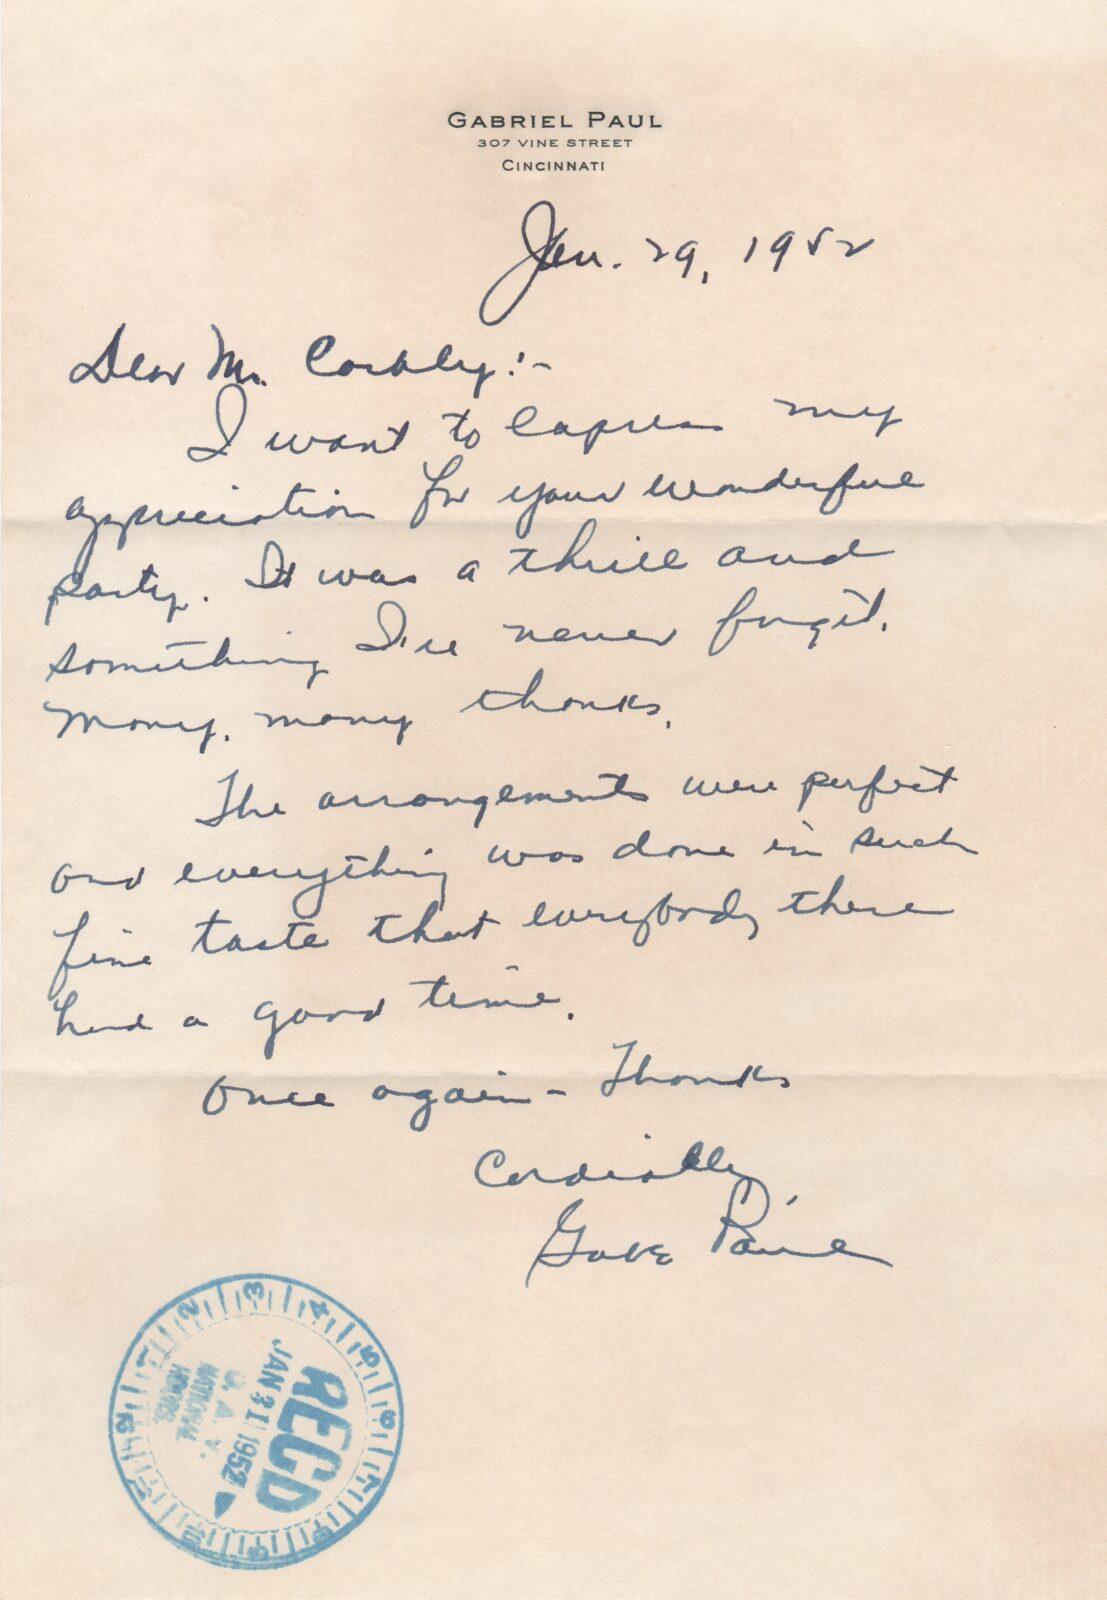 GABRIEL PAUL
307 VINE STREET
CINCINNATI
Jan. 29, 1952
Dear Mr. Corbly:-
I want to express my
appreciation for your wonderful
party. It was a thrill and
something I'll never forget.
Many, many thanks.
The arrangements were perfect
and everything was done in such
fine taste that everybody there
had a good time.
Once again - Thanks
Cordially
Gabe Paul
RECD
JAN 31 1952
D.A.V.
NATIONAL
HDQRS.
1 2 3 4 5 6 7 8 9 10 11 12